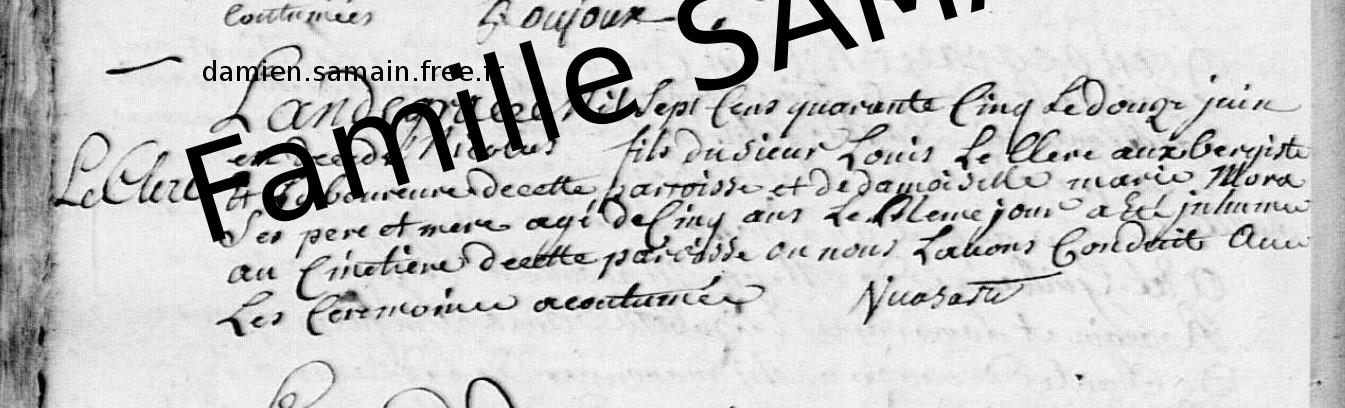 coutumées Goujoux
damien.samain.free.fr
Famille SAMA
L'an de grace Mil Sept Cens quarante Cinq Le douze juin
est decedé Nicolas fils du sieur Louis Le Clerc auxbergiste
Le Clerc
et Laboureure de cette parroisse et de damoiselle marie Mora
Ses pere et mere agé de Cinq ans Le Meme jour a Eté jnhumé
au Cimetiere de cette paroisse ou nous Lavons Conduit Avec
Les Ceremonie acoutumée